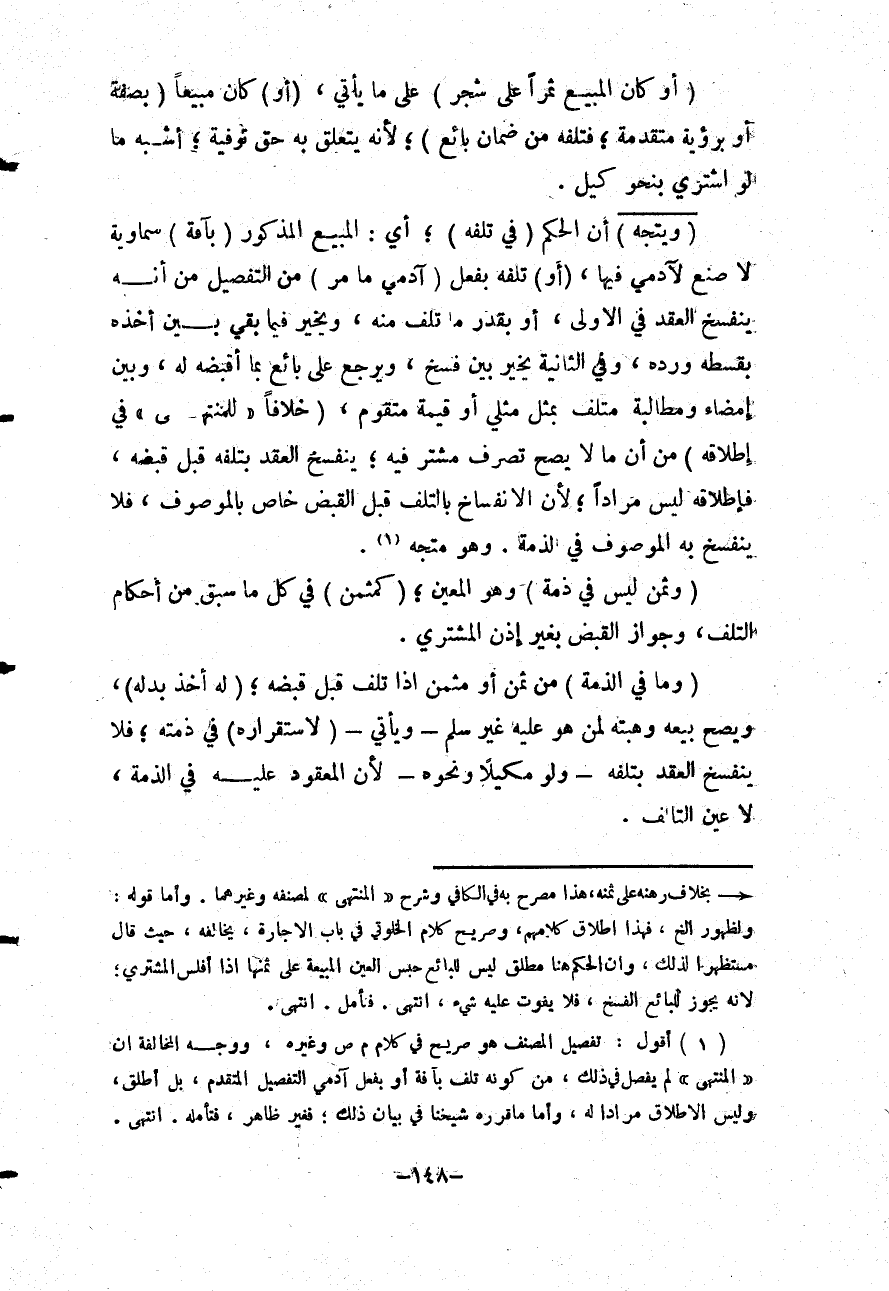 ( أو كان المبيع ثمراً على شجر ) على ما يأتي ، (أو) كان مبيعاً ( بصفة
أو برؤية متقدمة ؛ فتلفه من ضمان بائع ) ؛ لأنه يتعلق به حق توفية ؛ أشبه ما
لو اشتري بنحو كيل .
( ويتجه ) أن الحكم ( في تلفه ) ؛ أي : المبيع المذكور ( بآفة ) سماوية
لا صنع لآدمي فيها ، (أو) تلفه بفعل ( آدمي ما مر ) من التفصيل من أنه
ينفسخ العقد في الاولى ، أو بقدر ما تلف منه ، ويخير فيما بقي بين أخذه
بقسطه ورده ، وفي الثانية يخير بين فسخ ، ويرجع على بائع بما أقبضه له ، وبين
إمضاء ومطالبة متلف بمثل مثلي أو قيمة متقوم ، ( خلافاً « للمنتهى » في
إطلاقه ) من أن ما لا يصح تصرف مشتر فيه ؛ ينفسخ العقد بتلفه قبل قبضه ،
فإطلاقه ليس مراداً ؛ لأن الانفساخ بالتلف قبل القبض خاص بالموصوف ، فلا
ينفسخ به الموصوف في الذمة . وهو متجه (١) .
( وثمن ليس في ذمة ) وهو المعين ؛ ( كمثمن ) في كل ما سبق من أحكام
التلف، وجواز القبض بغير إذن المشتري .
( وما في الذمة ) من ثمن أو مثمن اذا تلف قبل قبضه ؛ ( له أخذ بدله )،
ويصح بيعه وهبته لمن هو عليه غير سلم – ويأتي – ( لاستقراره) في ذمته ؛ فلا
ينفسخ العقد بتلفه – ولو مكيلًا ونحوه – لأن المعقود عليه في الذمة ،
لا عين التالف .
← بخلاف رهنه على ثمنه، هذا مصرح به في الكافي وشرح « المنتهى » لمصنفه وغيرهما . وأما قوله :
ولظهور الخ ، فهذا اطلاق كلامهم، وصريح كلام الخلوتي في باب الاجارة ، يخالفه ، حيث قال
مستظهرا لذلك ، وان الحكم هنا مطلق ليس للبائع حبس العين المبيعة على ثمنها اذا أفلس المشتري؛
لانه يجوز للبائع الفسخ ، فلا يفوت عليه شيء ، انتهى . فتأمل . انتهى .
( ١ ) أقول : تفصيل المصنف هو صريح في كلام م ص وغيره ، ووجه المخالفة ان
« المنتهى » لم يفصل في ذلك ، من كونه تلف بآفة أو بفعل آدمي التفصيل المتقدم ، بل أطلق ،
وليس الاطلاق مرادا له ، وأما ماقرره شيخنا في بيان ذلك ؛ فغير ظاهر ، فتأمله . انتهى .
–١٤٨–